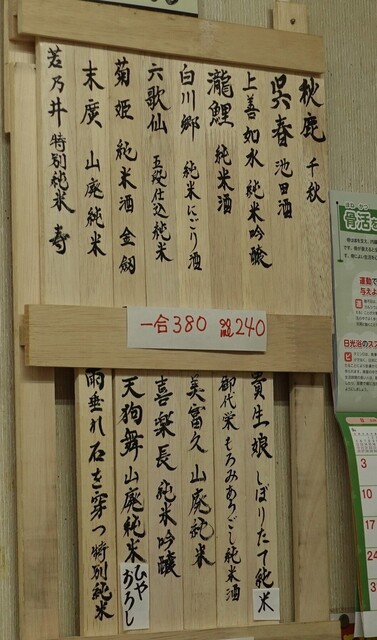 秋鹿 千秋
呉春 池田酒
上善如水 純米吟醸
瀧鯉 純米酒
白川郷 純米にごり酒
六歌仙 五段仕込純米
菊姫 純米酒 金劔
末廣 山廃純米
若乃井 特別純米 寿
一合380 240
貴生娘 しぼりたて純米
御代栄 もろみあらごし純米酒
美冨久 山廃純米
喜楽長 純米吟醸
天狗舞 山廃純米 ひやおろし
雨垂れ石を穿つ 特別純米
骨活
運動で
与えよ
日光浴のス
3
10
17
24